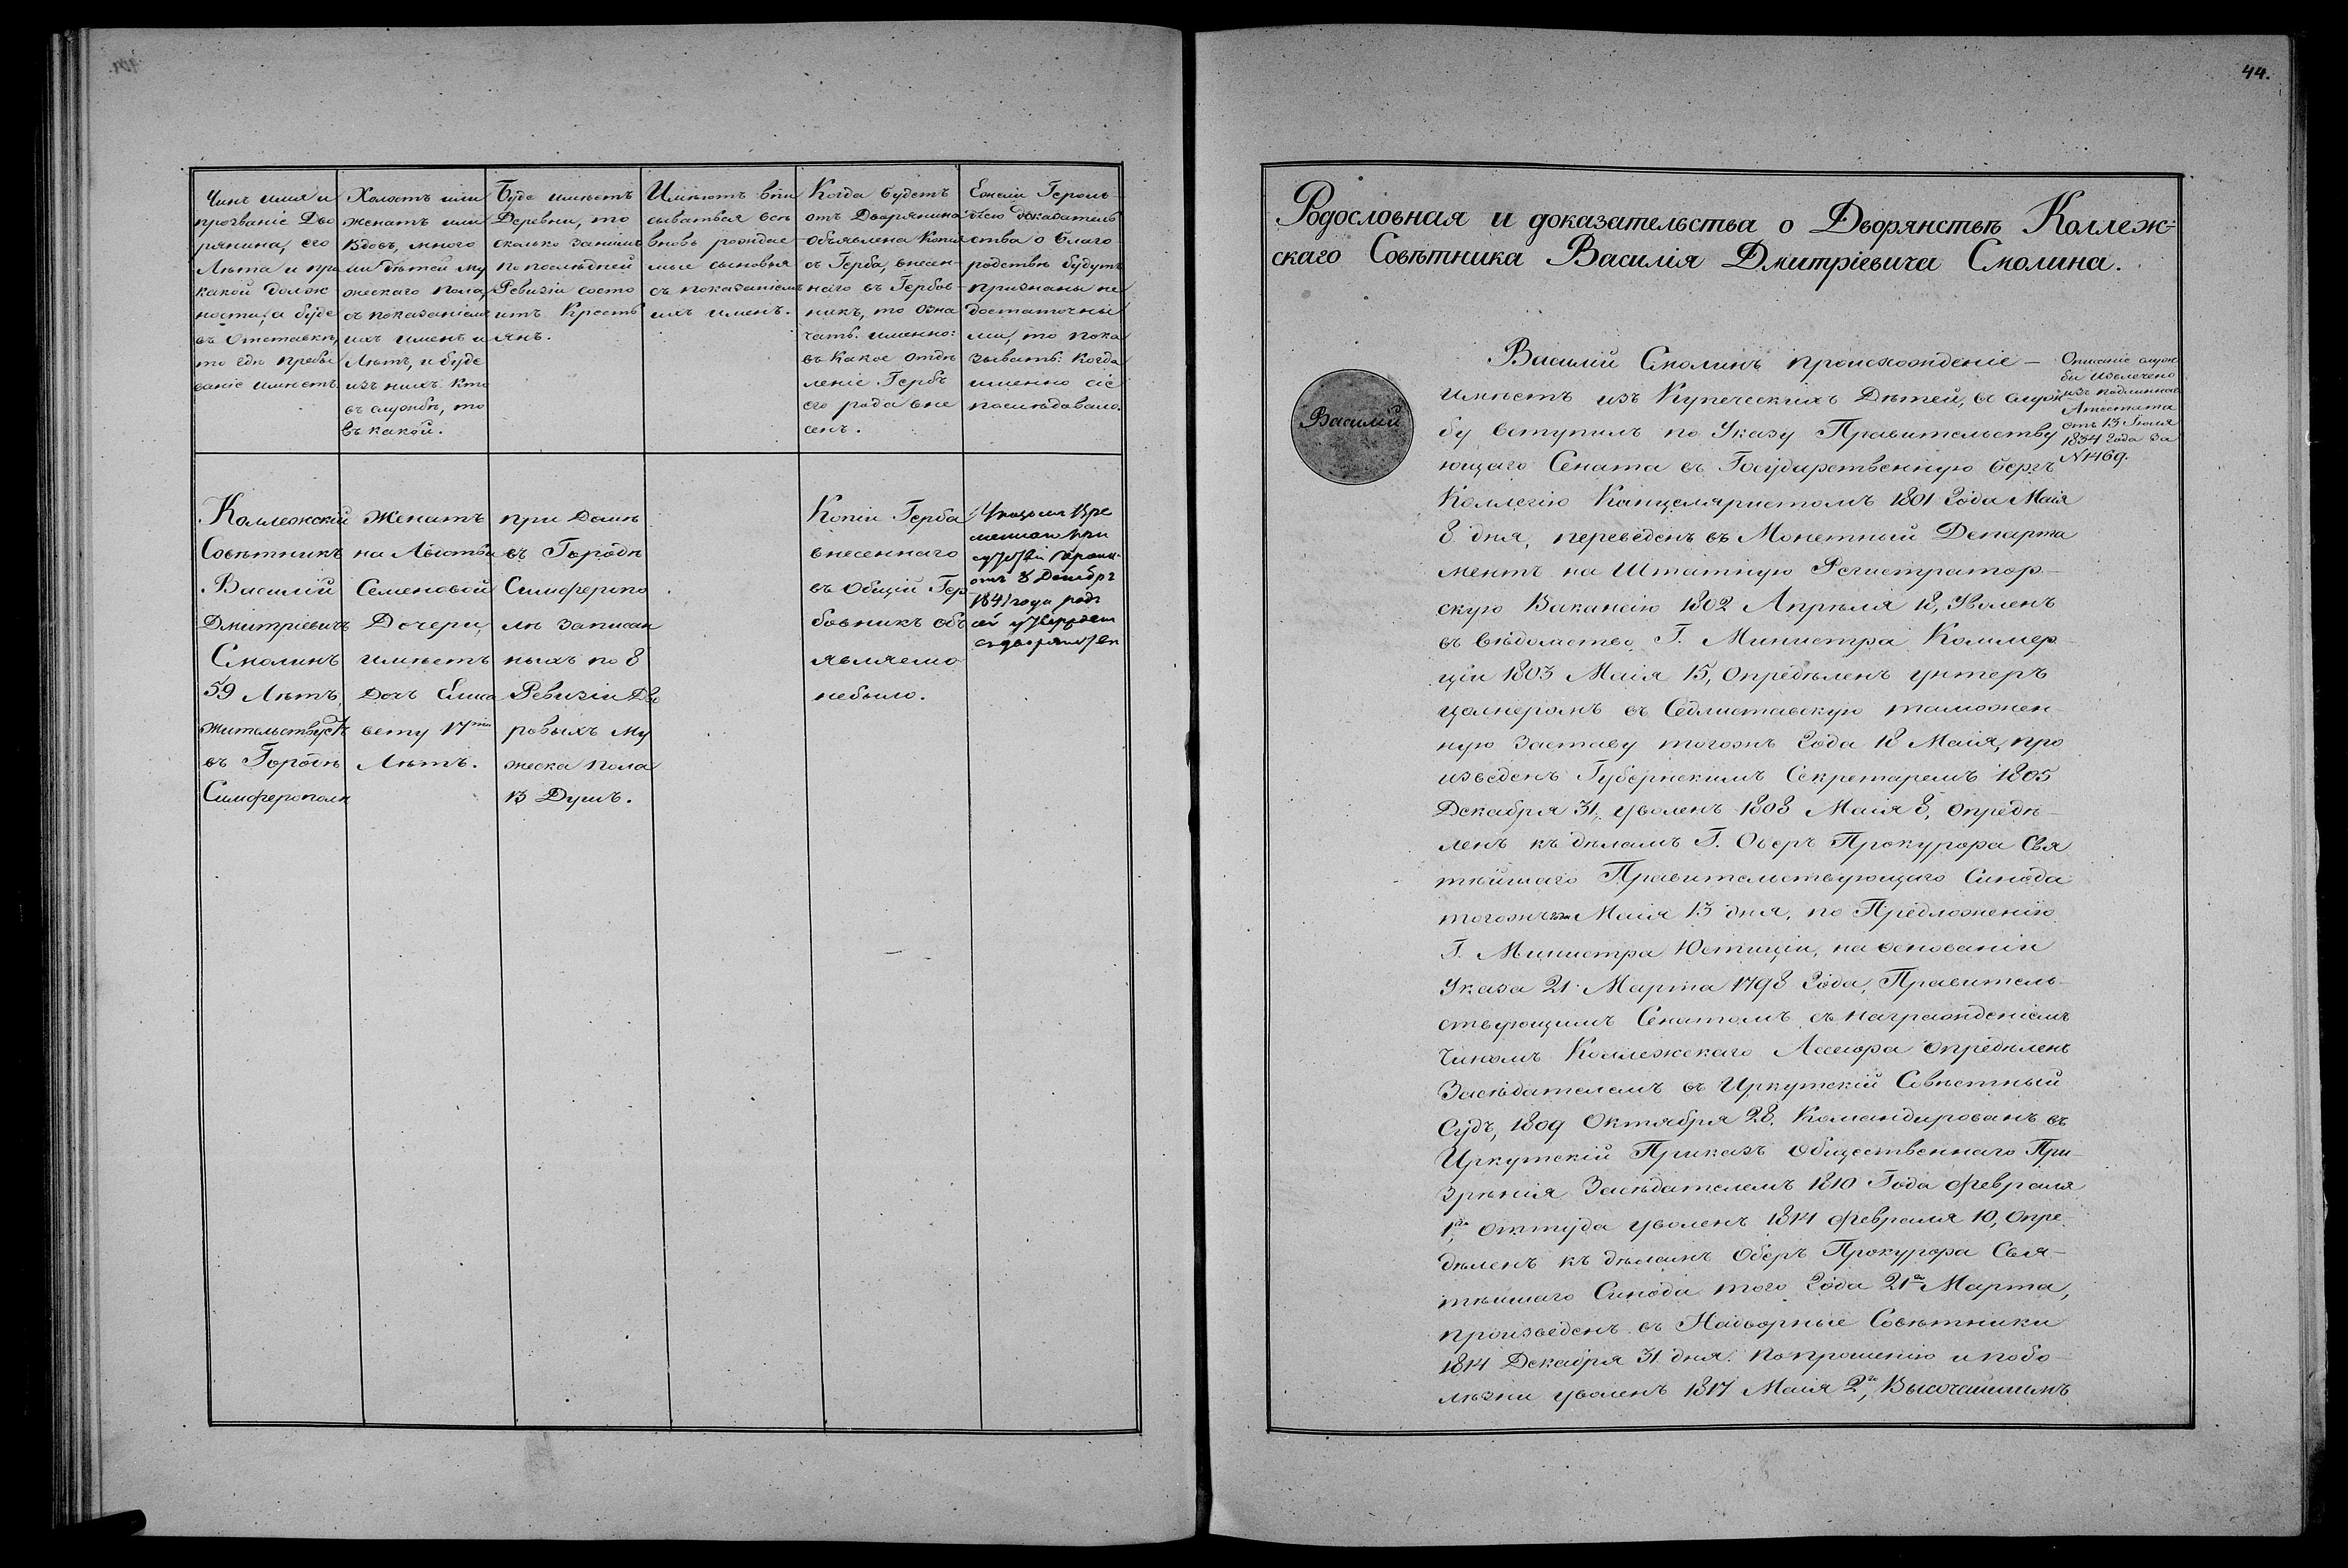 44.
Чинъ имя и
прозваніе Дво
рянина, его
Лѣта и при
какой долж
ности, а буде
въ Отставкѣ,
то гдѣ пребы
ваніе имѣетъ.
Холостъ или
женатъ или
Вдовъ, много
ли дѣтей му
жескаго пола,
съ показаніемъ
ихъ именъ и
Лѣтъ, и буде
изъ нихъ кто
въ службѣ, то
въ какой.
Буде имѣетъ
Деревни, то
сколько за нимъ
по послѣдней
Ревизіи состо
итъ Кресть
янъ.
Имѣютъ впи
сываться всѣ
вновь рождае
мые сыновья
съ показаніемъ
ихъ именъ.
Когда будетъ
отъ Дворянина
объявлена Копія
съ Герба, внесен-
наго въ Гербов-
никъ, то озна
чать именно:
въ Какое отдѣ
леніе Гербъ
его рода вне
сенъ.
Ежели Героль-
діею доказатель
ства о благо
родствѣ будутъ
признаны не
достаточны
ми, то пока
зывать: когда
именно сіе
послѣдовало.
Коллежскій
Совѣтникъ
Василій
Дмитріевичъ
Смолинъ
59 Лѣтъ,
жительствуетъ
въ Городѣ
Симферополѣ
Женатъ
на
Семеновой
Дочери,
имѣетъ
Дочь Елиса
вету 17ти
Лѣтъ.
при Домѣ
въ Городѣ
Симферопо
лѣ записан
ныхъ по 8
Ревизіи Дво
ровыхъ му
жеска пола
13 Душъ.
Копіи Герба
внесеннаго
въ Общій Гер-
бовникъ объ
являемо
небыло.
Указомъ Вре
меннаго при
отъ 8 Декабря
1841 года родъ
Родословная и доказательства о Дворянствѣ Коллеж-
скаго Совѣтника Василія Дмитріевича Смолина.
Василій
Василій Смолинъ происхожденіе –
имѣетъ изъ Купеческихъ Дѣтей, въ служ
бу вступилъ по Указу Правительству
ющаго Сената въ Государственную бергъ
Коллегію Канцеляристомъ 1801 года Маія
8 дня, переведенъ въ Монетный Департа
ментъ на Штатную Регистратор-
скую Вакансію 1802 Апрѣля 18, Уволенъ
въ вѣдомство Г. Министра Коммер
ціи 1803 Маія 15, опредѣленъ унтеръ
цолнеромъ въ таможен-
ную Заставу тогожъ года 18 Маія, про
изведенъ Губернскимъ Секретаремъ 1805
Декабря 31, уволенъ 1808 Маія 8, опредѣ-
ленъ къ дѣламъ Г. Оберъ Прокурора Свя
тѣйшаго Правительствующаго Синода
тогожъ года Маія 13 дня, по Предложенію
Г. Министра Юстиціи, на основаніи
Указа 21 Марта 1798 года, Правитель-
ствующимъ Сенатомъ съ награжденіемъ
чиномъ Коллежскаго Ассесора опредѣленъ
Засѣдателемъ въ Иркутскій Совѣстный
Судъ, 1809 Октября 28. Командированъ въ
Иркутскій Приказъ Общественнаго При-
зрѣнія Засѣдателемъ 1810 Года Февраля
1го, оттуда уволенъ 1814 Февраля 10, Опре-
дѣленъ къ дѣламъ Оберъ Прокурора Свя-
тѣйшаго Синода того Года 21а Марта,
произведенъ въ Надворные Совѣтники
1814 Декабря 31 дня. по прошенію и по бо-
лѣзни уволенъ 1817 Маія 2го, Высочайшимъ
Описаніе служ
бы извлечено
изъ подлиннаго
Атестата
отъ 13 Іюля
1834 года за
№ 1469.